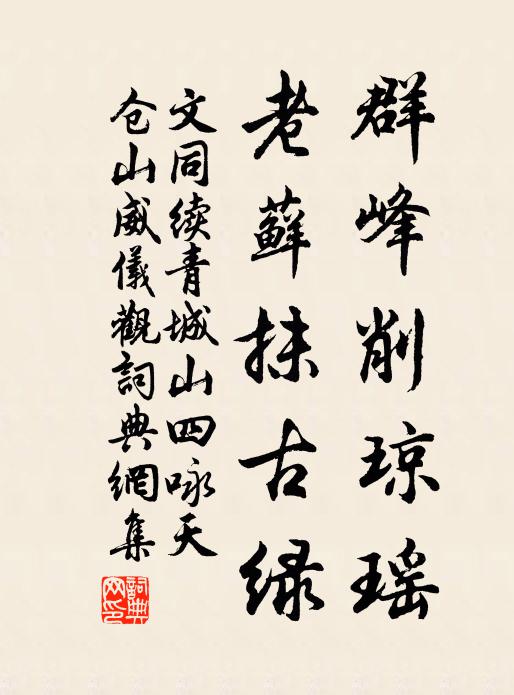 群峰削琼瑶
老藓抹古绿
文同续青城山四咏天
仓山威儀觀詞典網集
詞典网印